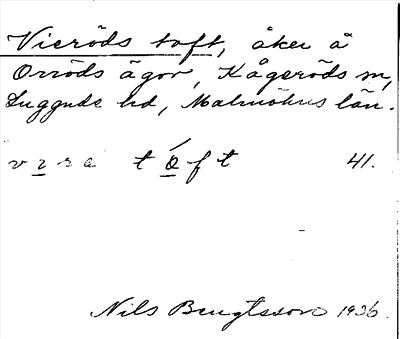 Vieröds toft, åker å
Orröds ägor, Kågeröds sn,
Luggude hd, Malmöhus län.
tǿft 41.
Nils Bengtsson 1936.